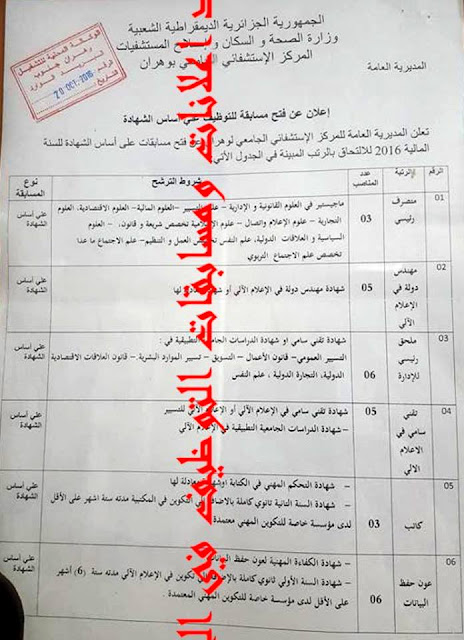 الجمهورية الجزائرية الديمقراطية الشعبية
وزارة الصحة و السكان و إصلاح المستشفيات
المركز الإستشفائي الجامعي بوهران
المديرية العامة
الوكالة المحلية للتشغيل
وهران جنوب
20 OCT. 2016
إعلان عن فتح مسابقة للتوظيف على أساس الشهادة
تعلن المديرية العامة للمركز الإستشفائي الجامعي لوهران عن فتح مسابقات على أساس الشهادة للسنة
المالية 2016 للالتحاق بالرتب المبينة في الجدول الآتي
الرقم
الرتبة
عدد المناصب
شروط الترشح
نوع المسابقة
01
متصرف رئيسي
03
ماجيستير في العلوم القانونية و الإدارية – علوم التسيير –العلوم المالية– العلوم الاقتصادية، العلوم
التجارية – علوم الإعلام واتصال – علوم الإسلامية تخصص شريعة و قانون، – العلوم
السياسية و العلاقات الدولية، علم النفس تخصص العمل و التنظيم– علم الاجتماع ما عدا
تخصص علم الاجتماع التربوي
على أساس الشهادة
02
مهندس دولة في الإعلام الآلي
05
شهادة مهندس دولة في الإعلام الآلي أو شهادة لها
على أساس الشهادة
03
ملحق رئيسي للإدارة
06
شهادة تقني سامي او شهادة الدراسات الجامعية التطبيقية في :
التسيير العمومي– قانون الأعمال – التسويق – تسيير الموارد البشرية– قانون العلاقات الاقتصادية
الدولية، التجارة الدولية ، علم النفس
على أساس الشهادة
04
تقني سامي في الاعلام الالي
05
شهادة تقني سامي في الإعلام الآلي أو الإعلام الآلي للتسيير
– شهادة الدراسات الجامعية التطبيقية في الإعلام الآلي
على أساس الشهادة
05
كاتب
03
– شهادة التحكم المهني في الكتابة أو شهادة معادلة لها
– شهادة السنة الثانية ثانوي كاملة بالإضافة إلى تكوين في المكتبية مدته ستة اشهر على الأقل
لدى مؤسسة خاصة للتكوين المهني معتمدة
على أساس الشهادة
06
عون حفظ البيانات
06
– شهادة الكفاءة المهنية لعون حفظ البيانات
– شهادة السنة الأولي ثانوي كاملة بالإضافة إلى تكوين في الإعلام الآلي مدته ستة (6) أشهر
على الأقل لدى مؤسسة خاصة للتكوين المهني المعتمدة .
على أساس الشهادة
اعلانات ومسابقات التوظيف في